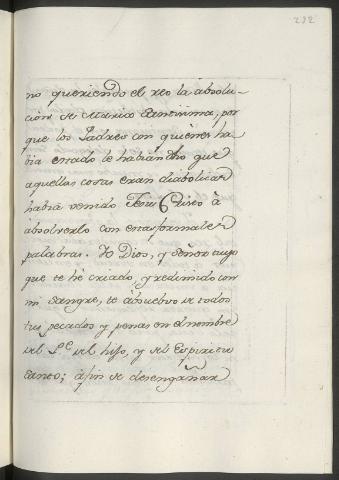 282
no queriendo el reo la absolu-
cion de Maria Santisima, por
que los Padres con quienes ha
bia estado le habian dho que
aquellas cosas eran diabolicas
habia venido Jesu Cristo à
absolverlo con estas formales
palabras. Yo Dios, y Señor tuyo
que te hé criado, y redimido con
mi sangre, te absuelvo de todos
tus pecados y penas en el nombre
del Pe del hijo, y del Espiritu
Santo; à fin de desengañar